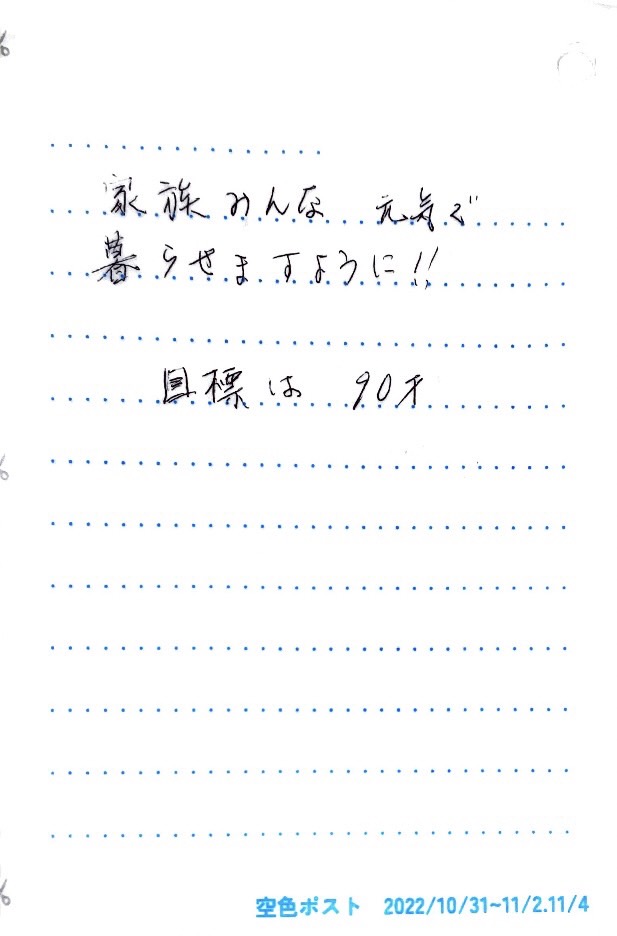 家族みんな 元気で
暮らせますように!!
目標は 90才
空色ポスト 2022/10/31~11/2.11/4